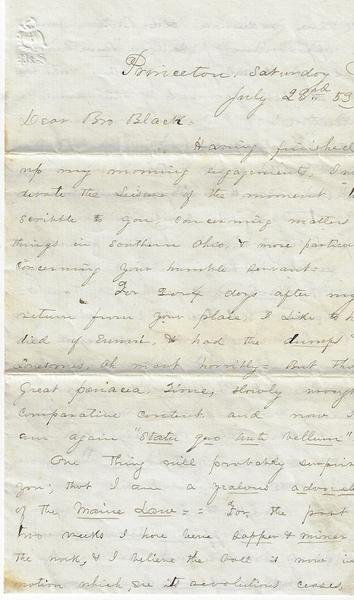 Princeton. Saturday
July 23rd 53
Dear Bro Black.
Having finished
up my morning engagements, I
the leisure of the moment,
scribble to you, concerning matter
things in Southern Ohio, & more particu
concerning your humble servant-
For 3 or 4 days after my
return from your place I like to h
died of Ennui, & had the dumps
most horribly- But tha
Great panacea, Time, slowly
comparative content and now I
am again "Statu quo ante bellum"
One thing will probably surprise
you; that I am a zealous advocate
of the Maine Law = = For the past
two weeks I have been sapper & miner
the work, & I believe the ball is now in
motion which, ere its revolutions ceases,